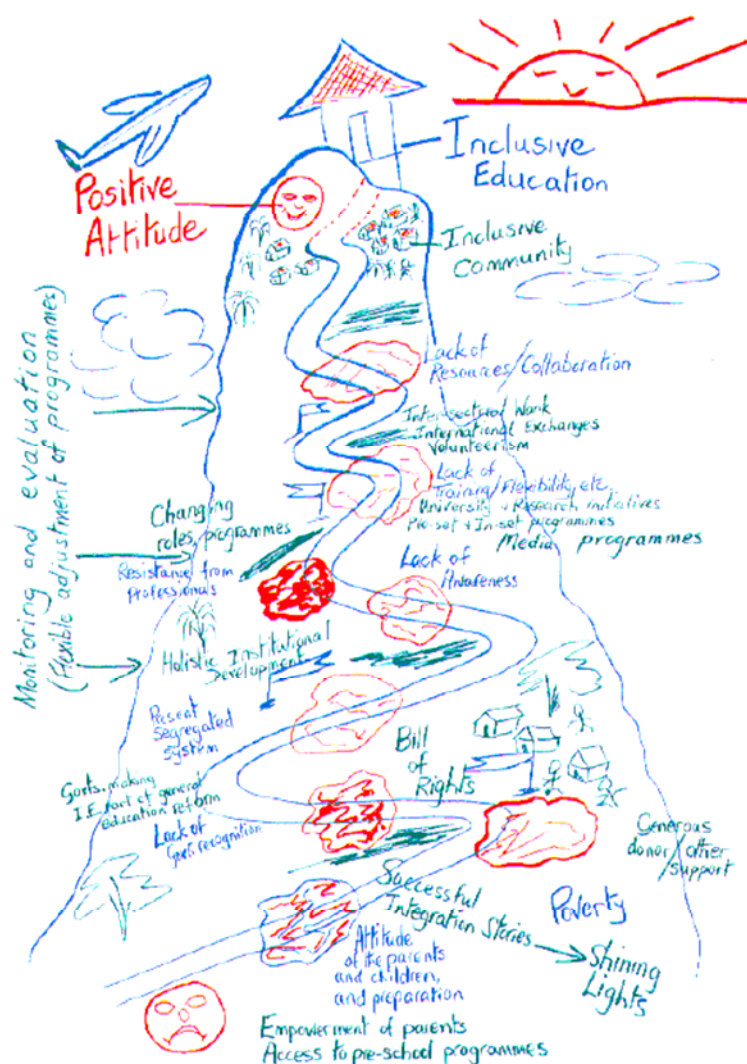 Inclusive
Education
Positive
Attitude
Inclusive
Community
Monitoring and evaluation
(flexible adjustment of programmes)
Lack of
Resources/Collaboration
Inter-sectoral Work
International Exchanges
Volunteerism
Lack of
Training/Flexibility, etc.
University + Research initiatives
Pre-set + In-set programmes
Media programmes
Changing
roles, programmes
Resistance from
professionals
Lack of
Awareness
Holistic Institutional
Development
Present
segregated
system
Bill
of
Rights
Govts. making
I.E. part of general
education reform
Lack of
Govt. recognition
Generous
donor/other
support
Successful
Integration Stories
Poverty
Shining
Lights
Attitude
of the parents
and children,
and preparation
Empowerment of parents
Access to pre-school programmes